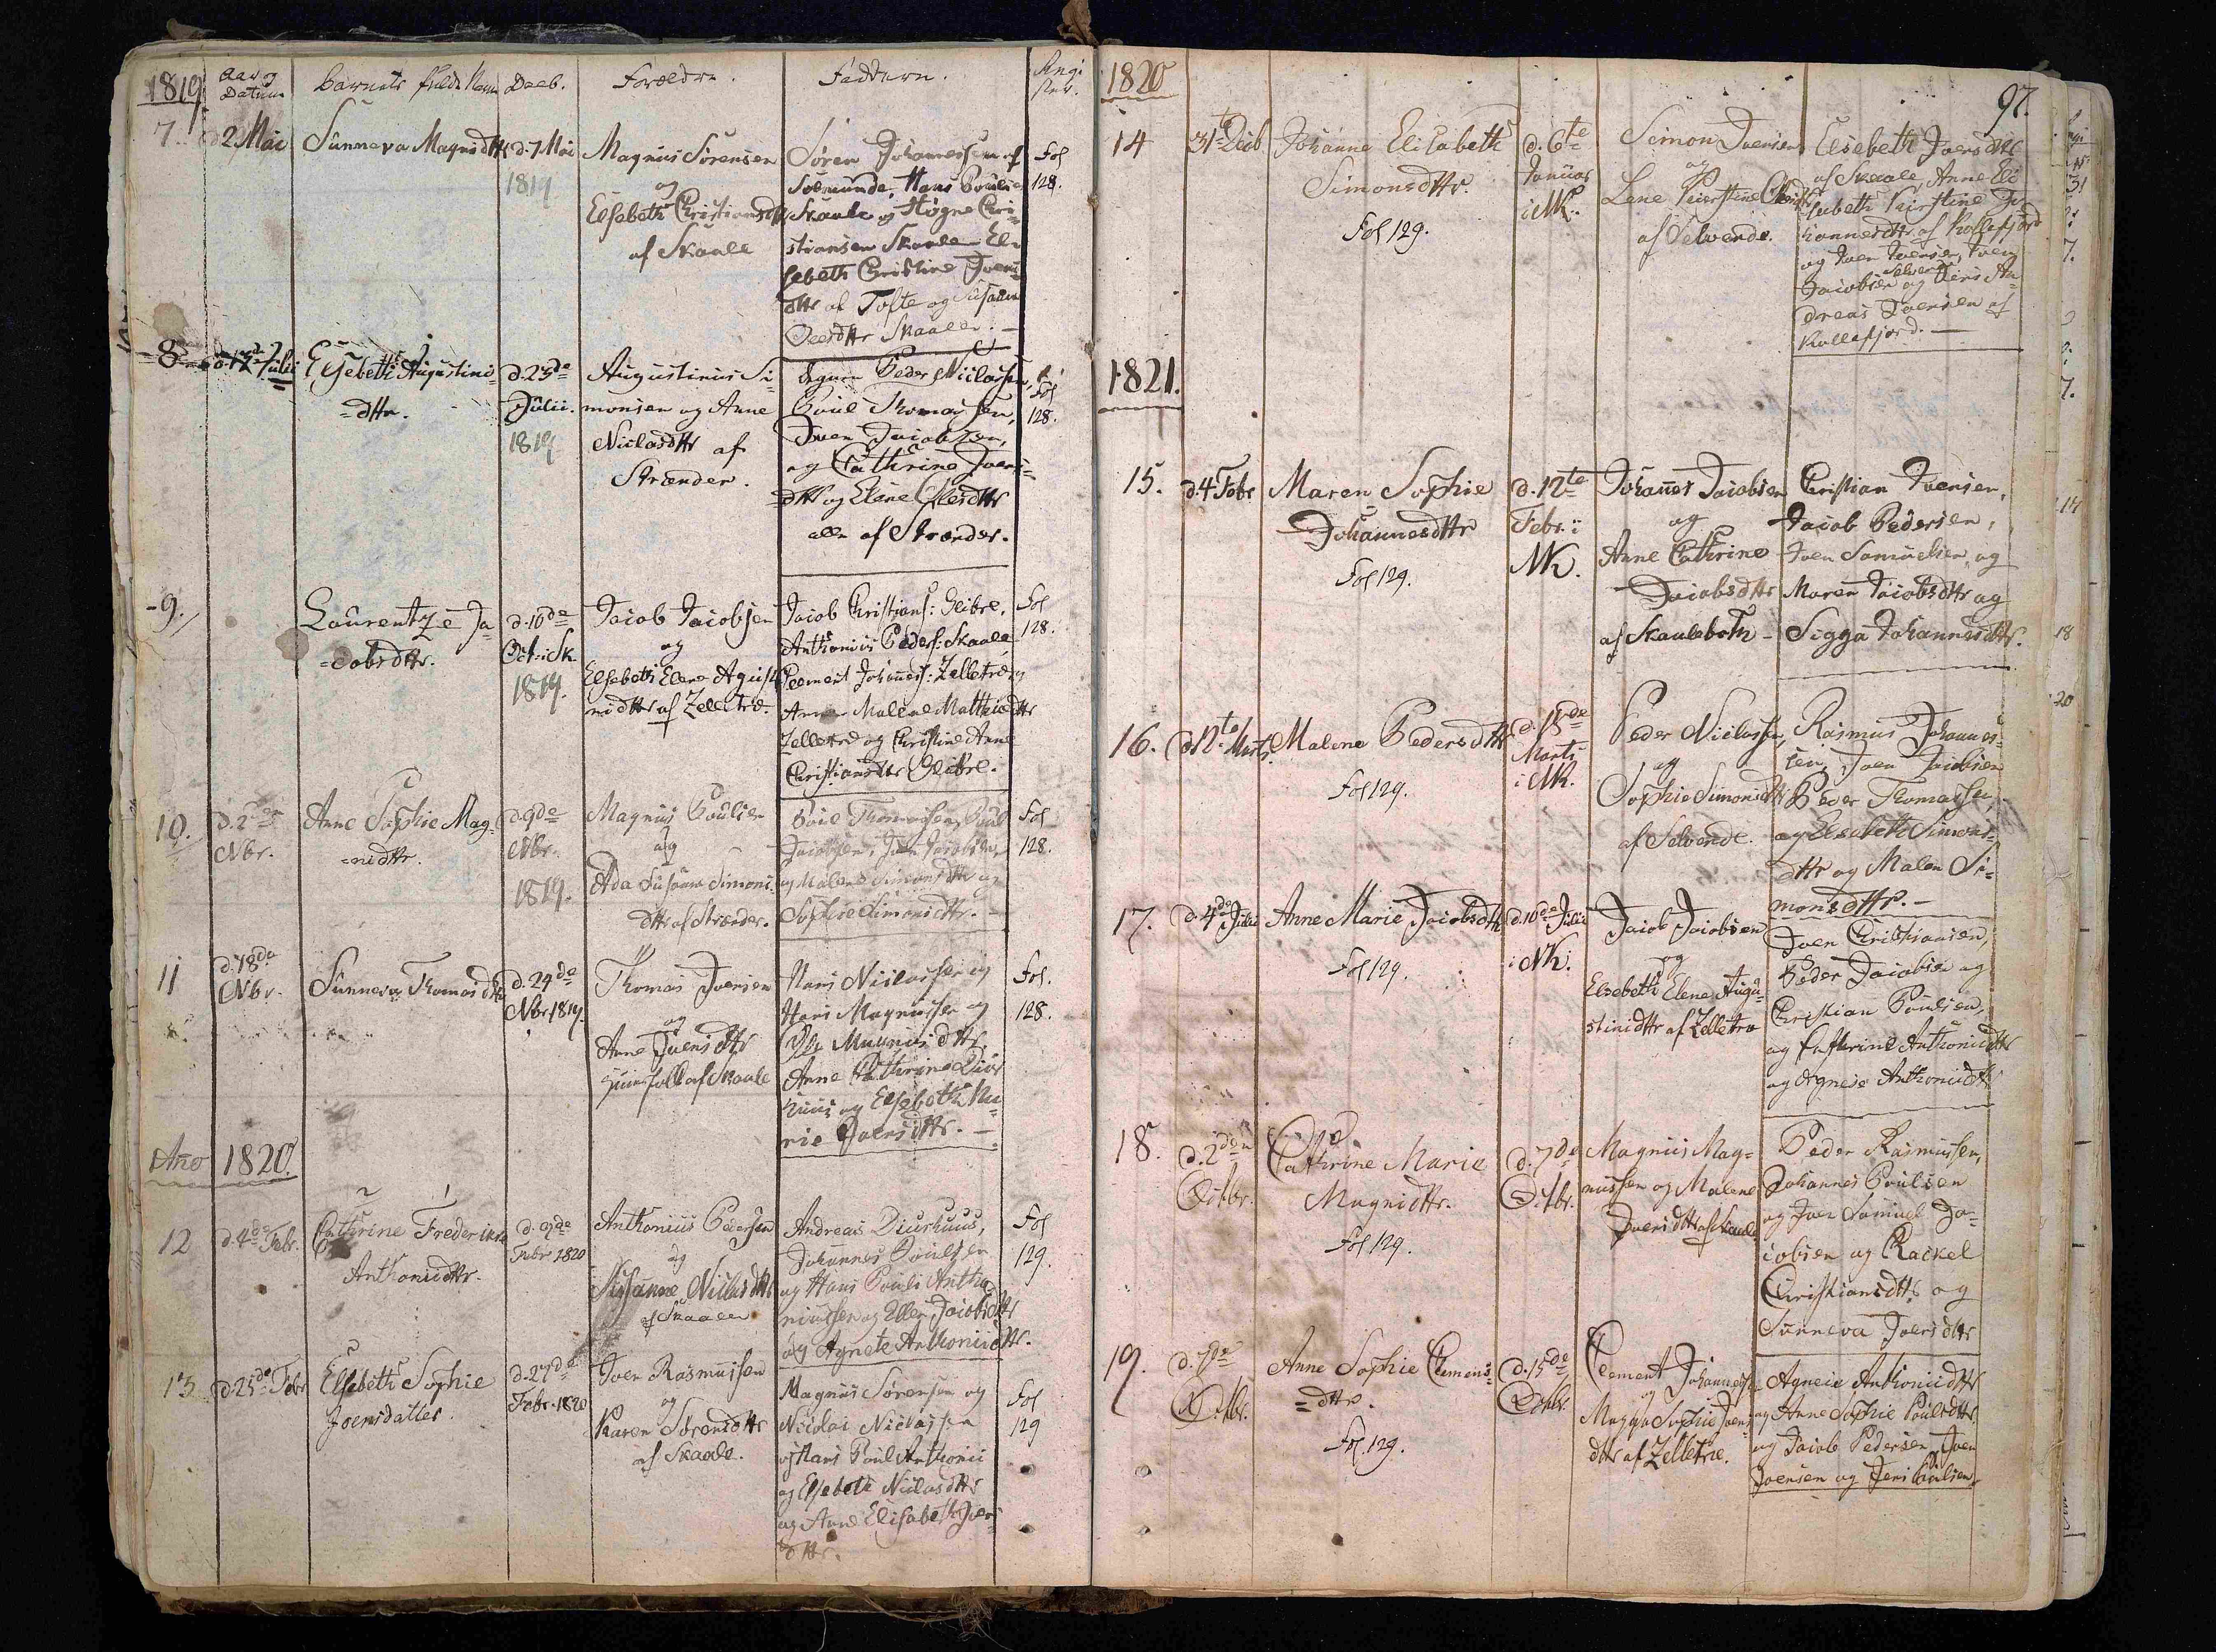 1819
Aar og Datum
Barnets fulde Navn
Daab.
Forældre.
Faddere.
Regi ster.
7.
d 2 Mai
Sunneva Magnidttr
d. 7 Mai
1819
Magnus Sørensen
og
Elsebeth Christiansdttr
af Skaale
Søren Johannessen af
Solmunde, Hans Poulse
Skaale og Høgne Chri-
stiansen Skaale El-
sebeth Christine Joens-
dttr af Tofte og Susanne
Oles dttr Skaale. —
Fol
128.
8
d. 17 Julii
Elsebeth Augustini-
=dttr.
d. 25de
Julii.
1819
Augustinus Si
monsen og Anne
Niclasdttr af
Strænder.
Peder Niclassen,
Poul Thomassen,
Joen Jacobsen,
og Cathrine Joens=
dttr og Elene Olesdttr
alle af Strænder.
Fol
128.
9.
Laurentze Ja
=cobsdttr.
d. 10de
Oct: i Sk.
1819.
Jacob Jacobsen
og
Elsebeth Elene Agusti
nidttr af Zelletræ.
Jacob Christians: Glibre,
Anthonius Peders: Skaale
Clement Johannes: Zelletræ og
Anne Malene Matthiedttr
Zelletræ og Christine Anne
Christiansdttr Glibre.
Fol
128.
10.
d. 2de
Nbr.
Anne Sophie Mag-
=nidttr.
d. 9de
Nbr.
1819.
Magnus Poulsen
og
Ada Susanne Simons
dttr af Strænder.
Poul Thomassen, Poul
Jacobsen, Joen Jacobsen,
og Malene Simonsdttr og
Sophie Simonsdttr. —
Fol
128.
11
d. 18de
Nbr.
Sunneva Thomasdttr
d. 24de
Nbr 1819.
Thomas Joensen
og
Anne Joensdttr
af Skaale
Hans Niclassen og
Hans Magnussen og
Magnusdttr.
Anne Cathrine Diur
huus og Elsebeth Ma
rie Joensdttr. —
Fol.
128.
Año 1820.
12
d. 4de Febr.
Cathrine Frederikca
Anthonidttr.
d. 9de
Febr 1820
Anthonius Pedersen
og
Susanne Niclasdttr
af Skaale
Andreas Diurhuus,
Johannes Poulsen
og Hans Pouli Antho
niussen og Ellen Jacobsdttr
og Agnete Anthoniidttr.
Fol
129.
13
d. 25de Febr
Elsebeth Sophie
Joensdatter.
d. 27de
Febr. 1820
Joen Rasmussen
og
Karen Sørensdttr
af Skaale.
Magnus Sørensen og
Nicolai Niclassen
og Hans Poul Anthonii
og Elsebeth Niclasdttr
og Anne Elisabeth Joens-
dttr.
Fol
129
1820
97.
14
31te Decb
Johanne Elisabeth
Simonsdttr.
Fol 129.
d. 6te
Januar
i NK.
Simon Joensen
og
Lene Kierstine
af Selvende.
Elsebeth Joensdttr
af Skaale, Anne Eli
sebeth Kirstine Jo-
hannesdttr af Kollefjord
og Joen Joensen, Joen
Jacobsen Selvende og Jens An
dreas Joensen af
Kollefjord. —
1821.
15.
d. 4 Febr
Maren Sophie
Johannesdttr
Fol 129.
d. 12te
Febr. i
NK.
Johannes Jacobsen
og
Anne Cathrine
Jacobsdttr
af Skaalebotn -
Christian Joensen,
Jacob Pedersen,
Joen Samuelsen, og
Maren Jacobsdttr og
Sigga Johannesdttr.
16.
d 12te Marts
Malene Pedersdttr
Fol 129.
d. 18de
Marti
i NK.
Peder Niclassen,
og
Sophie Simonsdttr
af Selvende.
Rasmus Johannes-
sen, Joen Jacobsen
Peder Thomassen,
og Elsebeth Simons-
dttr og Malen Si-
monsdttr. —
17.
d. 4de Julii
Anne Marie Jacobsdttr
Fol 129.
d. 10de Julii
i NK.
Jacob Jacobsen
og
Elsebeth Elene Augu-
stinidttr af Zelletræ
Joen Christiansen,
Peder Jacobsen og
Christian Poulsen,
og Cathrine Anthonidttr
og Agnese Anthonidttr
18.
d. 2den
Octbr.
Cathrine Marie
Magnidttr.
Fol 129.
d. 7de
Octbr.
Magnus Mag-
nussen og Malene
Joensdttr af Skaale
Peder Rasmussen,
Johannes Poulsen
og Joen Samuel Ja-
cobsen og Rackel
Christiansdttr og
Sunneva Joensdttr
19.
d. 7de
Octbr.
Anne Sophie Clemens-
=dttr.
Fol 129.
d. 15de
Octbr.
Clement Johannesen
og
Magga Sophie Joens
dttr af Zelletræ.
Agneie Anthonidttr
og Anne Sophie Poulsdttr
og Jacob Pedersen Joen
Joensen og Jens Poulsen.